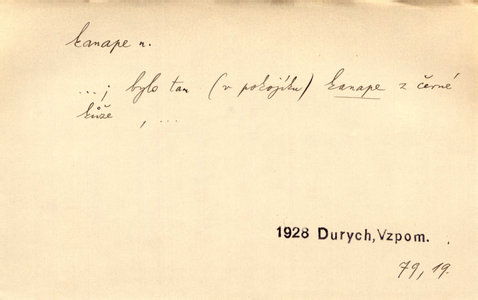 kanape n.
...; bylo tam (v pokojíku) kanape z černé
kůže, ...
1928 Durych, Vzpom.
79, 19.